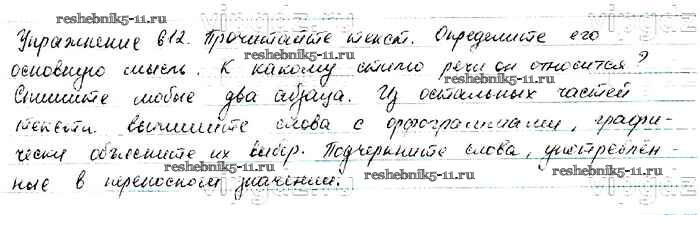 reshebnik5-11.ru
Упражнение 612. Прочитайте текст. Определите его
reshebnik5-11.ru
основную мысль. К какому стилю речи он относится?
Спишите любые два абзаца. Из остальных частей
текста выпишите слова с орфограммами, графи-
чески объясните их выбор. Подчеркните слова, употреблён-
ные в переносном значении.
reshebnik5-11.ru
reshebnik5-11.ru